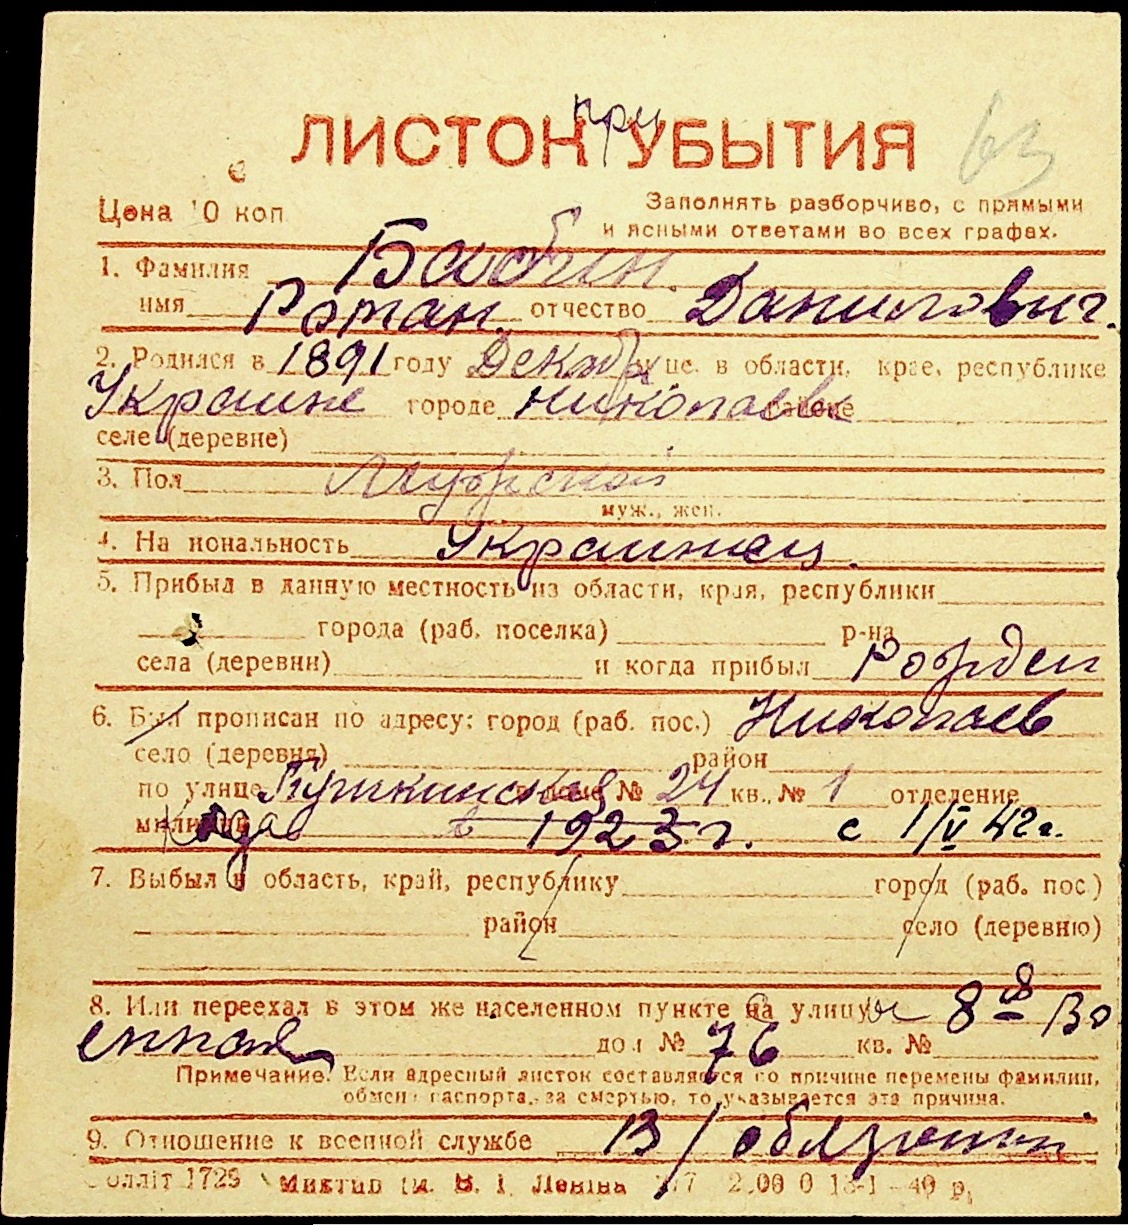 при
ЛИСТОК УБЫТИЯ 63
Цена 10 коп Заполнять разборчиво, с прямыми
и ясными ответами во всех графах.
1. Фамилия Бабин.
имя Роман. отчество Данилович.
2. Родился в 1891 году Декабр це, в области, крае, республике
Украине городе Николаев районе
селе (деревне)
3. Пол Мужской
муж., жен.
4. Национальность Украинец.
5. Прибыл в данную местность из области, края, республики
города (раб. поселка) р-на
села (деревни) и когда прибыл Рожден
6. Был прописан по адресу: город (раб. пос.) Николаев
село (деревня) район
по улице Пушкинская доме № 24 кв. № 1 отделение
милиции Когда в 1923 г. с 1/V 42 г.
7. Выбыл в область, край, республику город (раб. пос.)
район село (деревню)
8. Или переехал в этом же населенном пункте на улицу 8 я Во
енная дом № 76 кв. №
Примечание. Если адресный листок составляется по причине перемены фамилии,
обмена паспорта, за смертью, то указывается эта причина.
9. Отношение к военной службе В/обязанный
оллiт 1729 iм. В. І. Ленiна